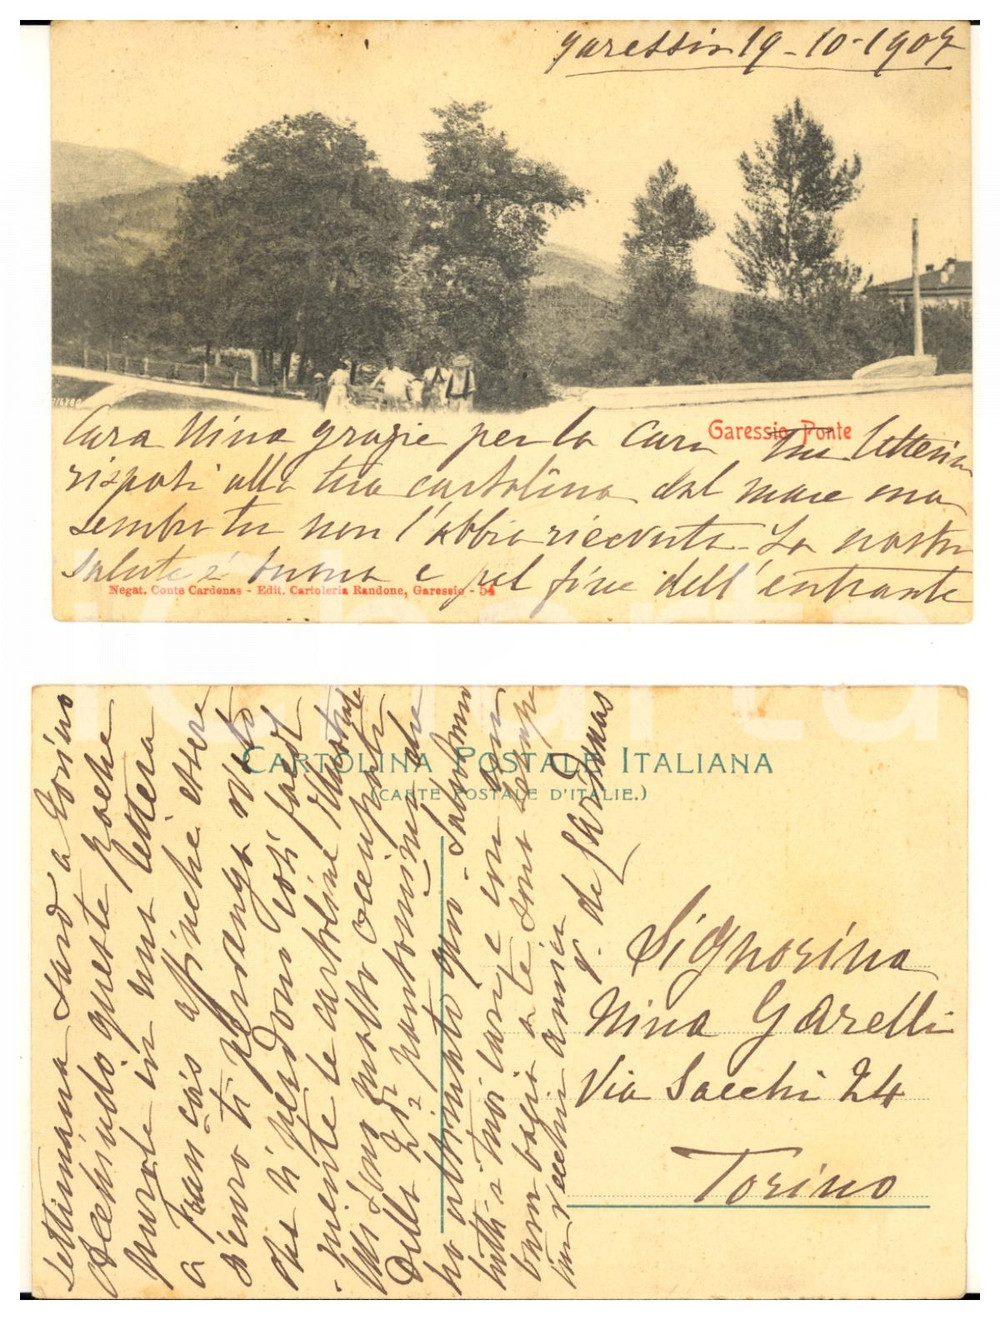 Garessio 19-10-1907
Garessio Ponte
Cara Nina grazie per la cara tua letterina
risposi alla tua cartolina dal mare ma
sembra tu non l'abbia ricevuta. La nostra
salute è buona e pel fine dell'entrante
Negat. Conte Cardenas - Edit. Cartoleria Randone, Garessio - 54
settimana sarò a Torino
Acchiudo queste poche
parole in una lettera
a Français affinchè essere
sicuro ti pervenga
che si perdono così facil
mente le cartoline illustrate
Mi sono molto occupata
della pantomima che
ho ultimato qui. Salutami
tutti i tuoi care e con un
buon bacio a te sono sempre
tua vecchia amica
CARTOLINA POSTALE ITALIANA
(CARTE POSTALE D'ITALIE.)
Signorina
Nina Garelli
Via Sacchi 24
Torino